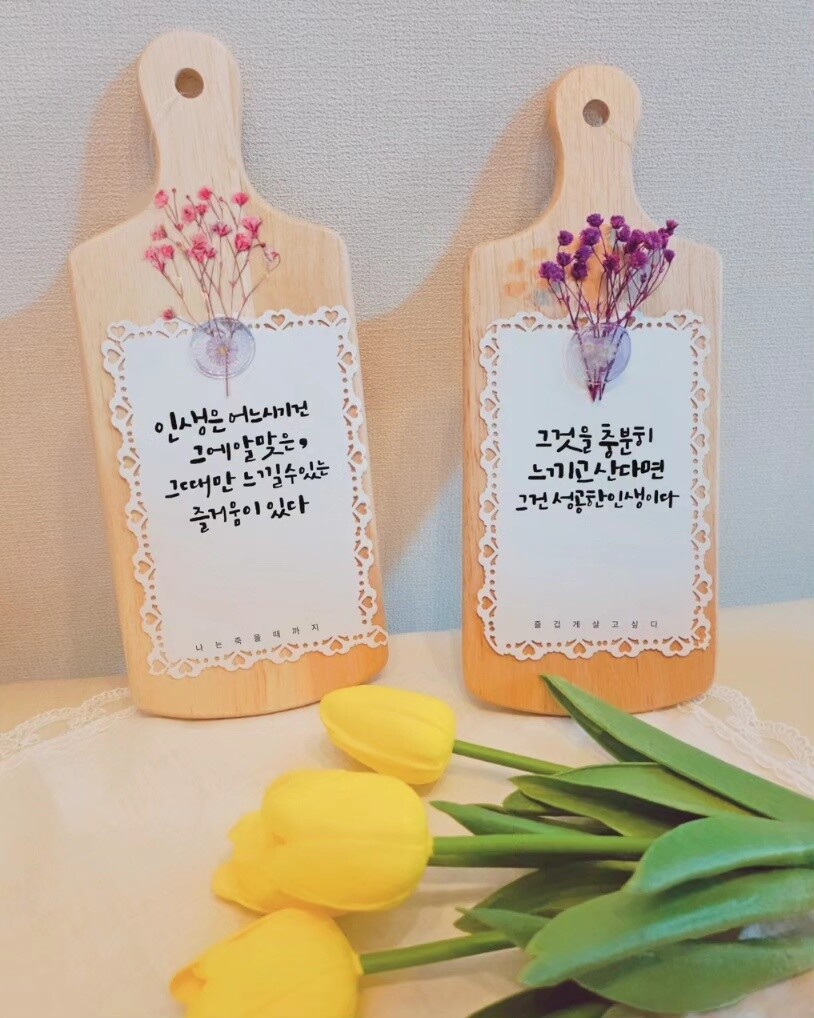 인생은 어느시기건
그에 알맞은,
그때만 느낄수있는
즐거움이 있다
나는죽을때까지
그것을 충분히
느끼고 산다면
그건 성공한 인생이다
즐겁게살고싶다